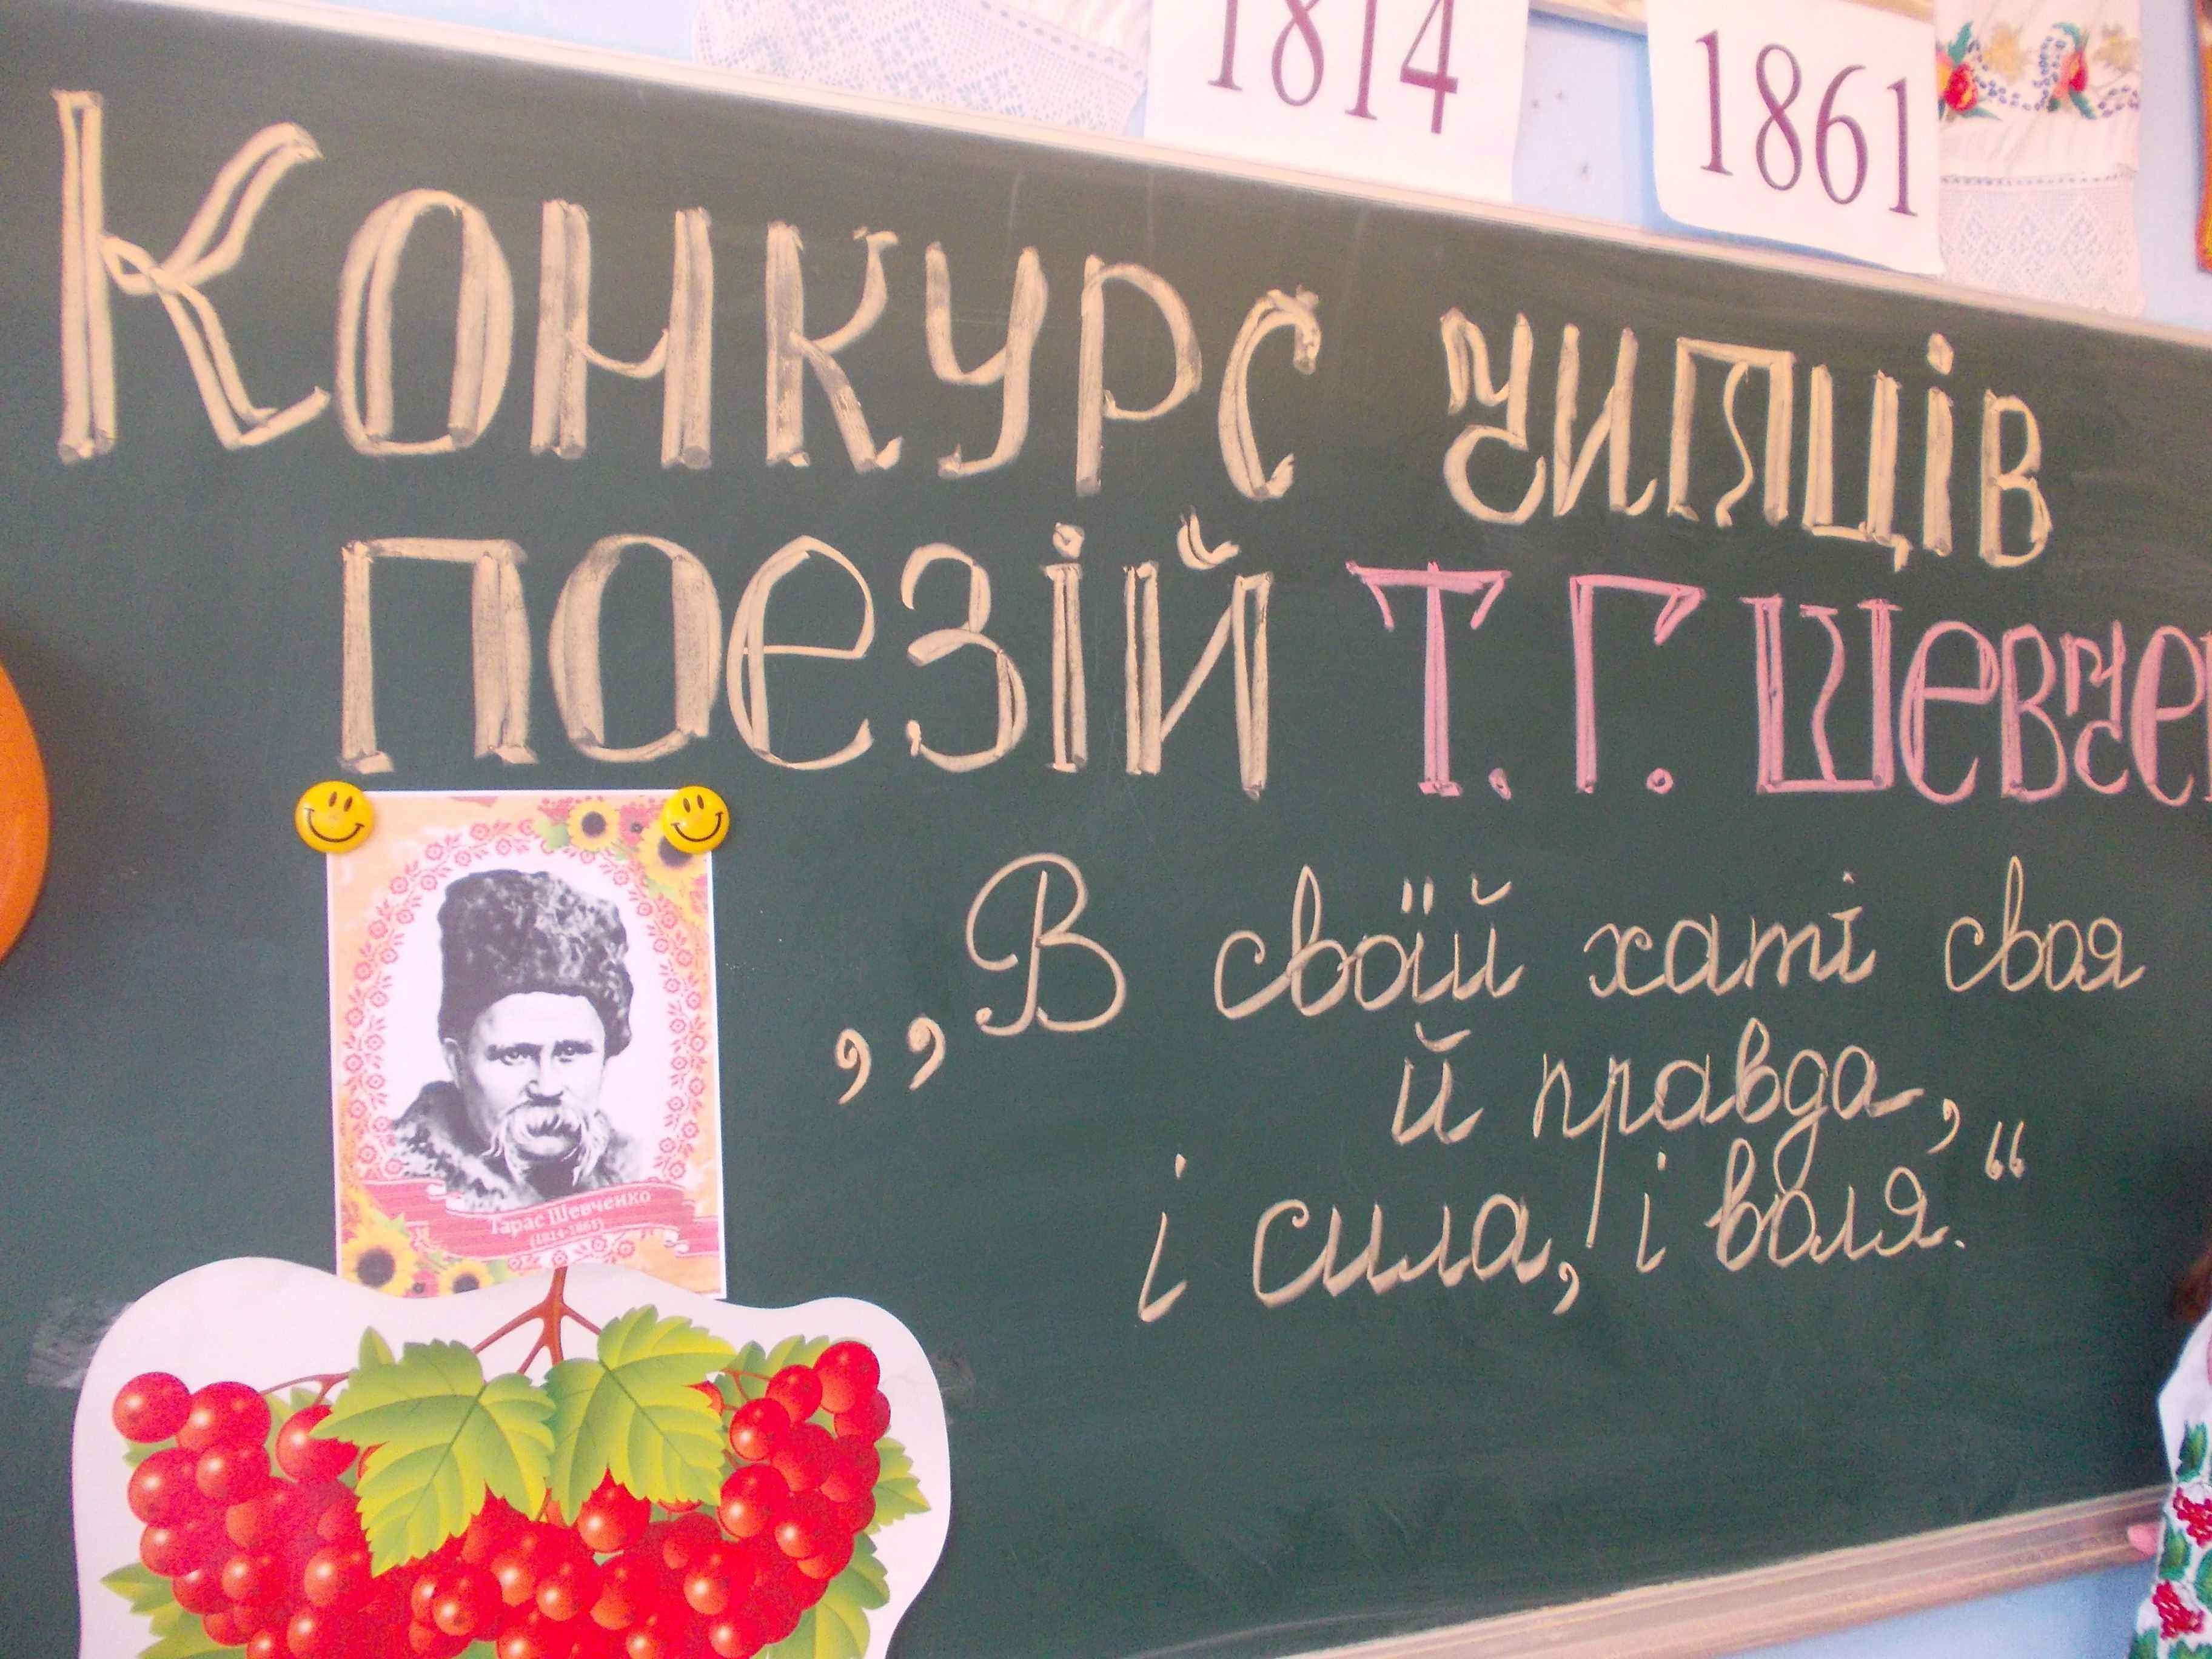 1814
1861
Конкурс читців
поезій Т. Г. Шевче
„В своїй хаті своя
й правда,
і сила, і воля.“
Тарас Шевченко
(1814-1861)